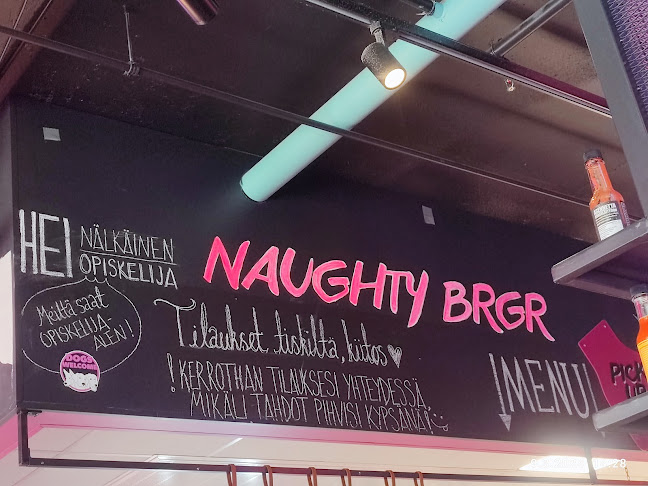 HEI NÄLKÄINEN
OPISKELIJA
Meiltä saat
OPISKELIJA-
ALEN!
DOGS
WELCOME
NAUGHTY BRGR
Tilaukset tiskiltä, kiitos
! KERROTHAN TILAUKSESI YHTEYDESSÄ,
MIKÄLI TAHDOT PIHVISI KYPSÄNÄ!
MENU
PICK
UP